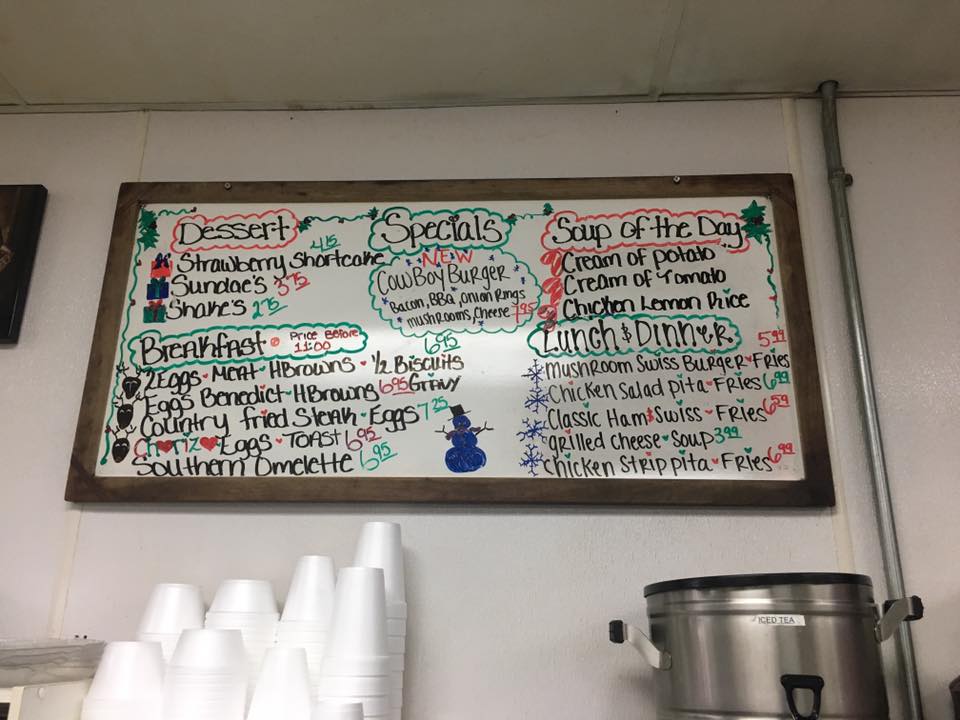 Dessert
Strawberry Shortcake 4.15
Sundae's 3.75
Shake's 2.75
Breakfast Price Before 11:00
2 Eggs Meat HBrowns 1/2 Biscuits Gravy 6.95
Eggs Benedict HBrowns 6.95
Country fried Steak Eggs 7.25
Choriz♥ Eggs Toast 6.95
Southern Omelette 6.95
Specials
NEW
CowBoy Burger
Bacon, BBQ, Onion Rings
mushrooms, Cheese 7.95
Soup of the Day
Cream of potato
Cream of Tomato
Chicken Lemon Rice
Lunch & Dinner
mushroom Swiss Burger Fries 5.99
Chicken Salad pita Fries 6.99
Classic Ham & Swiss Fries 6.59
grilled Cheese Soup 3.99
chicken Strip pita Fries 6.99
ICED TEA